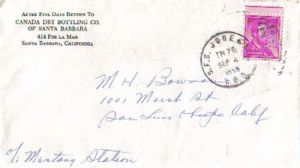 AFTER FIVE DAYS RETURN TO
CANADA DRY BOTTLING CO.
OF SANTA BARBARA
414 POR LA MAR
SANTA BARBARA, CALIFORNIA
S.F.& S. JOSE
TR 76
SEP 4
R.P.O.
M H Bowman
1001 Marsh St
San Luis Obispo Calif
Station